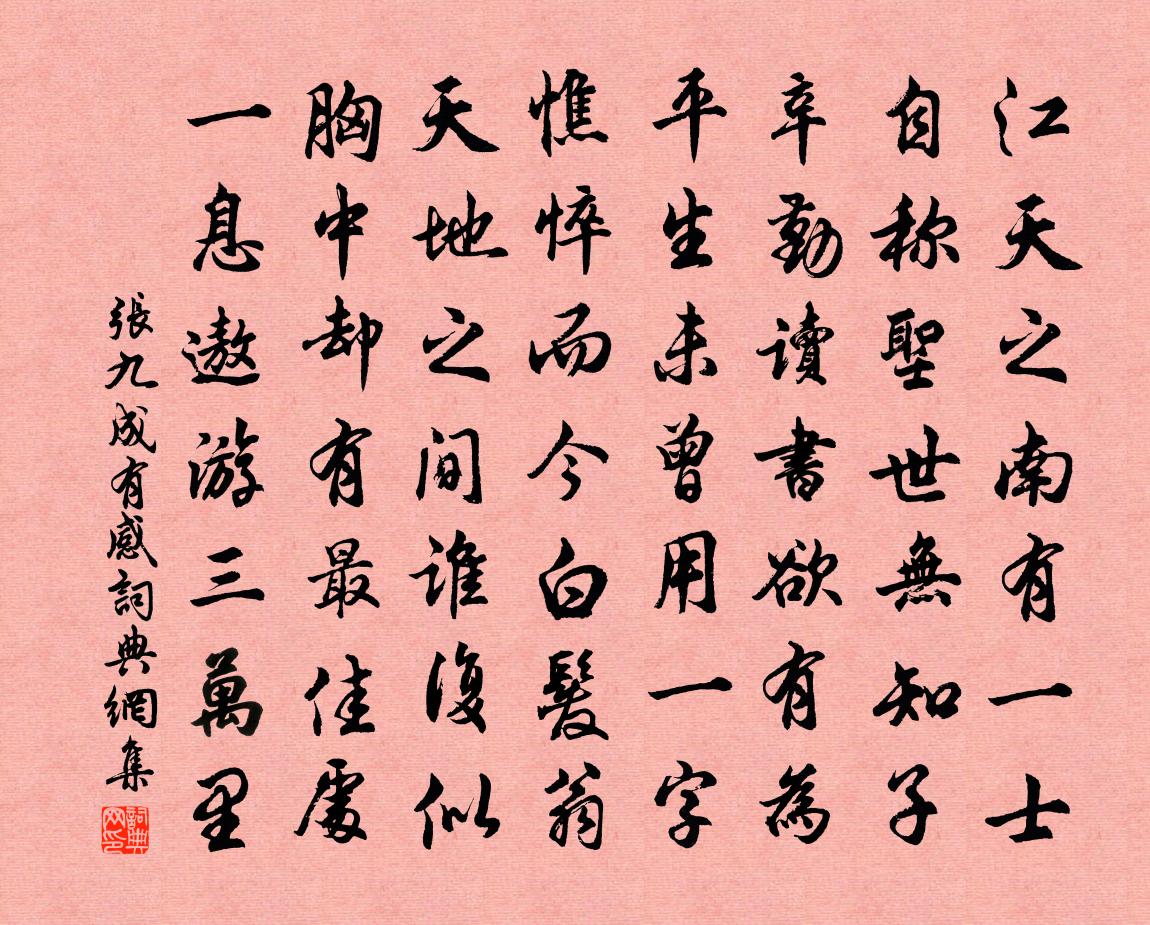 江天之南有一士
自称聖世無知子
辛勤讀書欲有為
平生未曾用一字
憔悴而今白髮翁
天地之间誰復似
胸中却有最佳處
一息遨游三萬里
張九成有感詞典網集
詞典网印